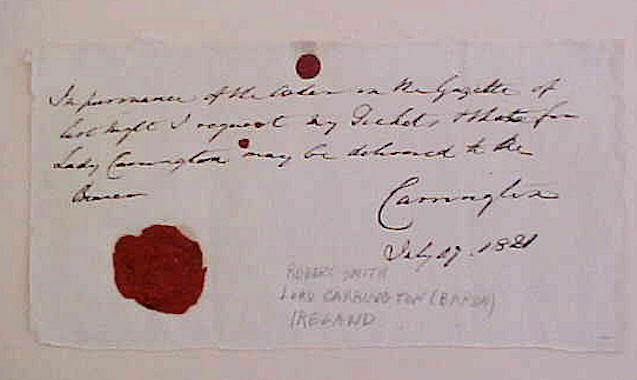 In pursuance of the Order in the Gazette of
last night I request my Tickets & that for
Lady Carrington may be delivered to the
Bearer
Carrington
July 17. 1821
ROBERT SMITH
LORD CARRINGTON (BARON)
IRELAND